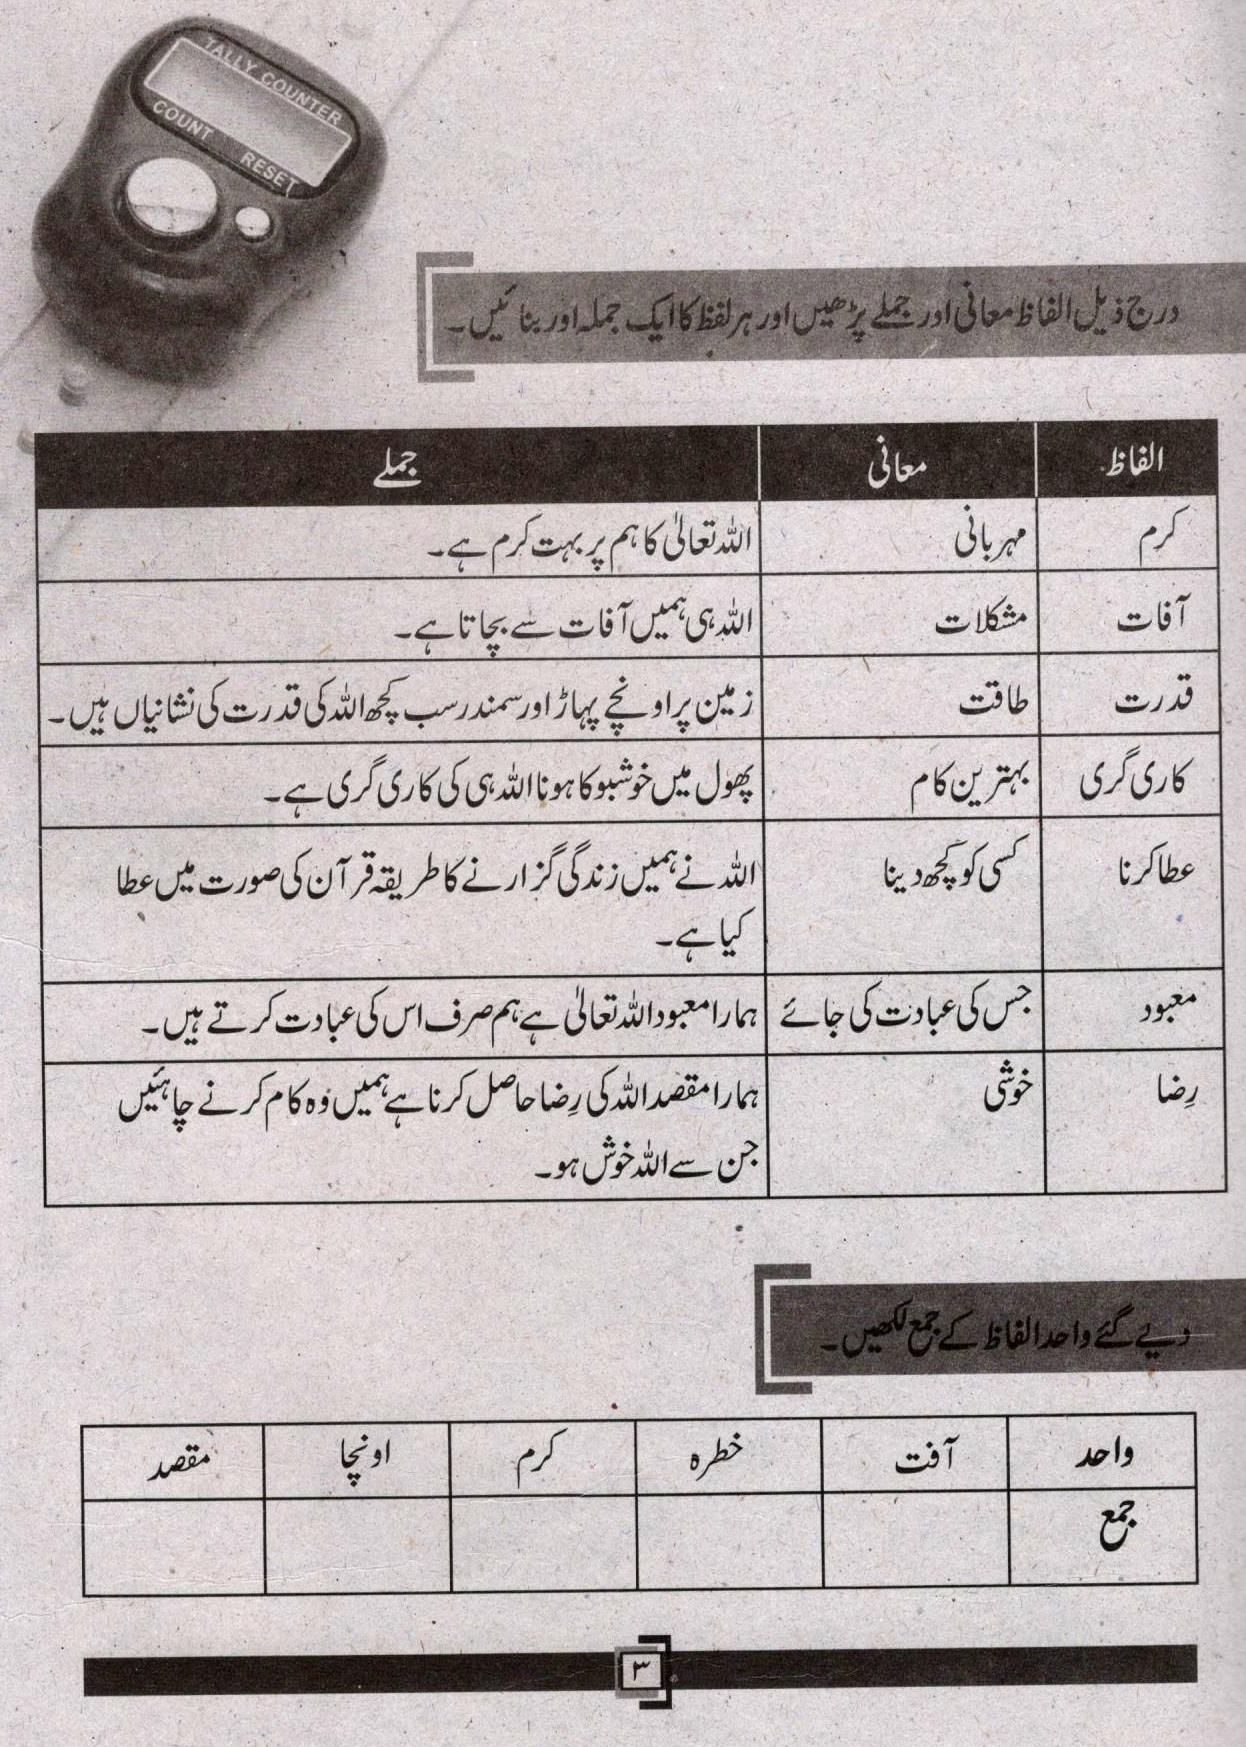 TALLY COUNTER
COUNT RESET
درج ذیل الفاظ معانی اور جملے پڑھیں اور ہر لفظ کا ایک جملہ اور بنائیں۔
الفاظ معانی جملے
کرم مہربانی اللہ تعالیٰ کا ہم پر بہت کرم ہے۔
آفات مشکلات اللہ ہی ہمیں آفات سے بچاتا ہے۔
قدرت طاقت زمین پر اونچے پہاڑ اور سمندر سب کچھ اللہ کی قدرت کی نشانیاں ہیں۔
کاری گری بہترین کام پھول میں خوشبو کا ہونا اللہ ہی کی کاری گری ہے۔
عطا کرنا کسی کو کچھ دینا اللہ نے ہمیں زندگی گزارنے کا طریقہ قرآن کی صورت میں عطا
کیا ہے۔
معبود جس کی عبادت کی جائے ہمارا معبود اللہ تعالیٰ ہے ہم صرف اس کی عبادت کرتے ہیں۔
رِضا خوشی ہمارا مقصد اللہ کی رِضا حاصل کرنا ہے ہمیں وہ کام کرنے چاہئیں
جن سے اللہ خوش ہو۔
دیے گئے واحد الفاظ کے جمع لکھیں۔
واحد آفت خطرہ کرم اونچا مقصد
جمع
۳